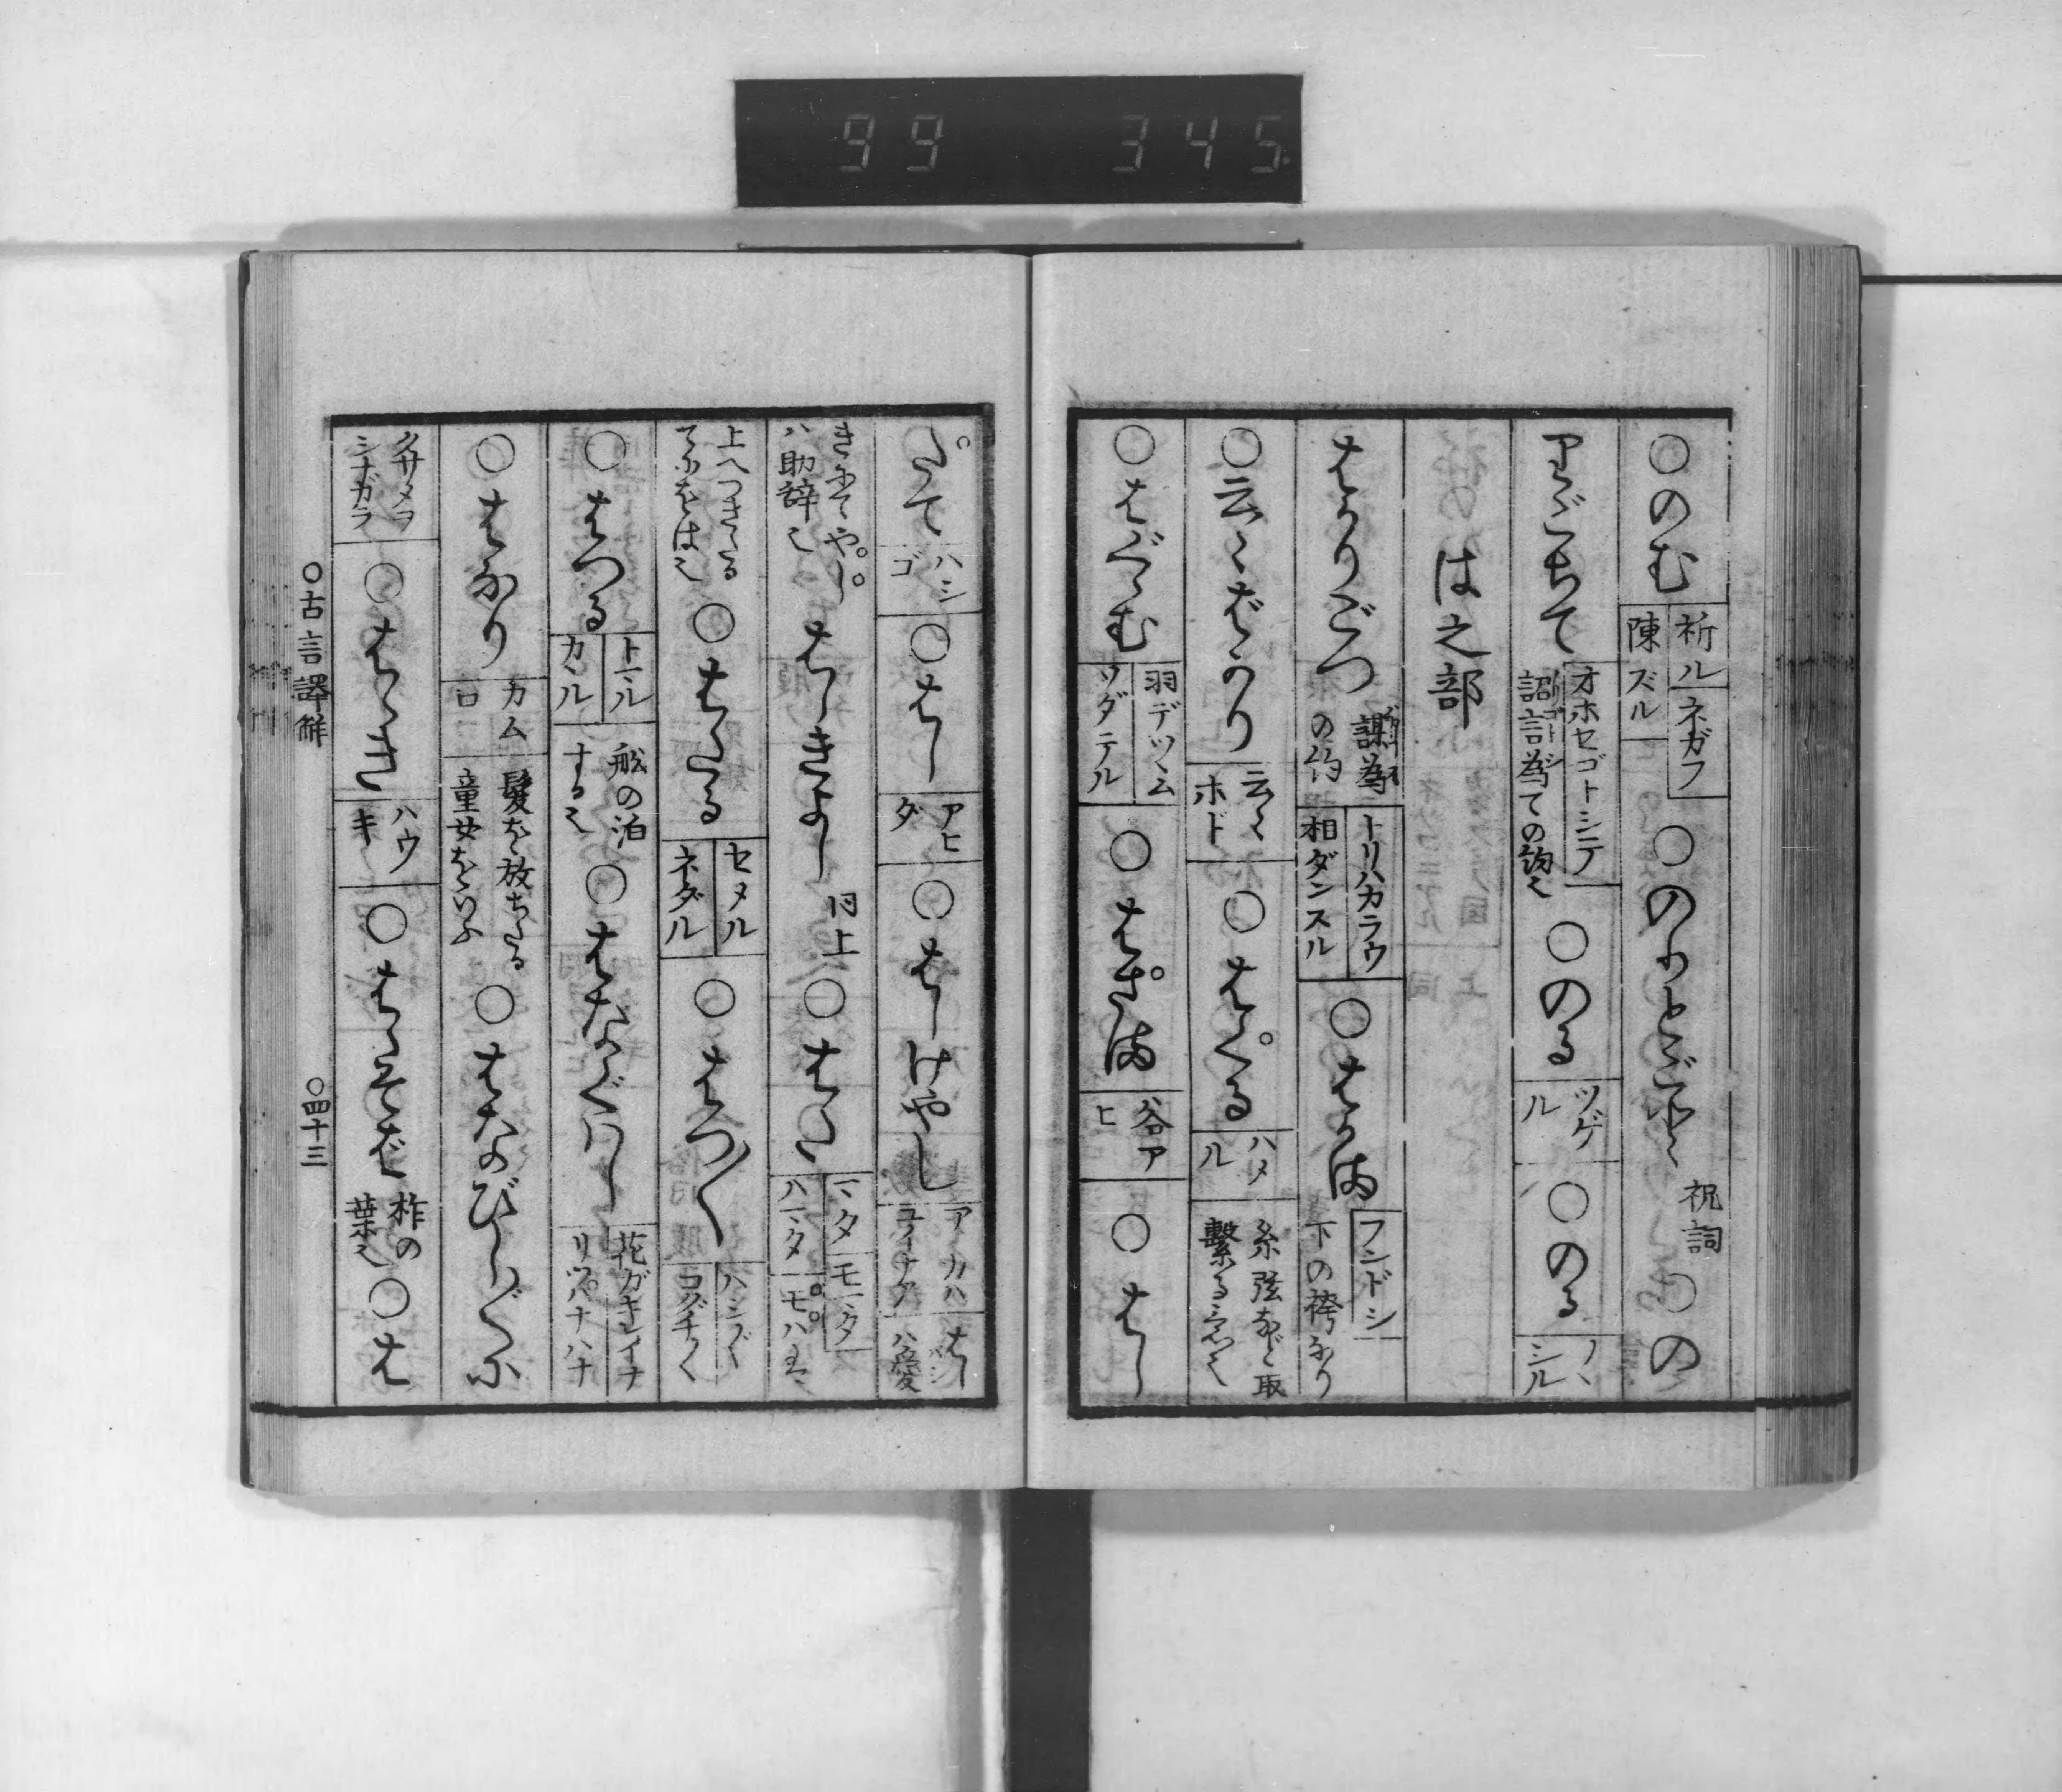 99 345
○のむ 祈ル ネガフ 陳ズル ○のりとごと 祝詞 ○の
りごちて オホセゴトシテ 詔言為ての約也 ○のる ツゲル ○のる ノヽシル
は之部
はかりごつ 謀為の約 トリハカラウ 相ダンスル ○はかま フンドシ 下の袴なり
○云々ばかり 云々ホド ○はくる ハメル 糸弦など取繋る
○はぐゝむ 羽デツヽム ソダテル ○はざま 谷アヒ ○はし
たて ハシゴ ○はし アヒダ ○はしけやし アヽカハユイナア はしハ愛
きにてやしハ助辞也 はしきよし 同上 ○はた マタ モマタ ハマタ
上へつきたるてにをは也 ○はたる セメル ネダル ○はつ〳〵
○はつる トマル カヽル 船の泊する也 ○はなぐはし 花ガキレイナ リツパナハナ
○はなり カムロ 髪を放ちたる童女をいふ ○はなのびし〴〵に
クサメヲシナガラ ○はゝき ハウキ ○はゝそば 柞の葉也 ○は
○古言譯解 ○四十三